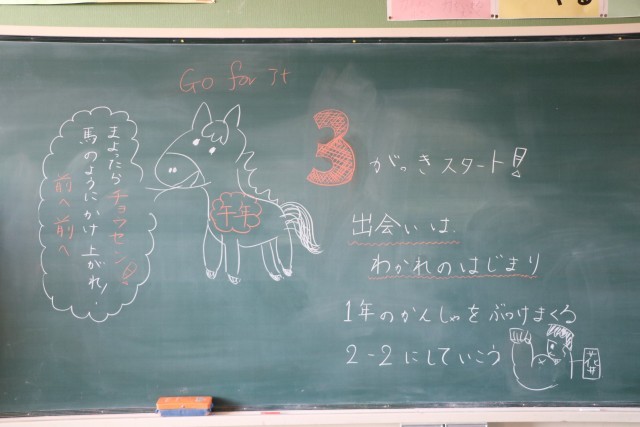 Go for It
3がっきスタート!
出会いは
わかれのはじまり
1年のかんしゃをぶつけまくる
2-2にしていこう
午年
まよったらチョウセン!
馬のようにかけ上がれ!
前へ前へ